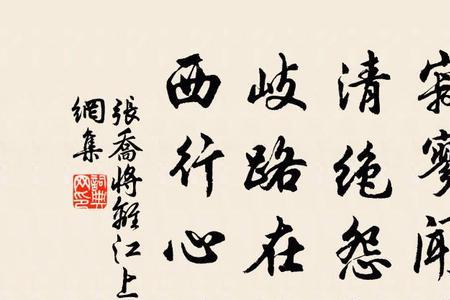 寂寥闻
清绝怨
岐路在
西行心
張喬将離江上
網集